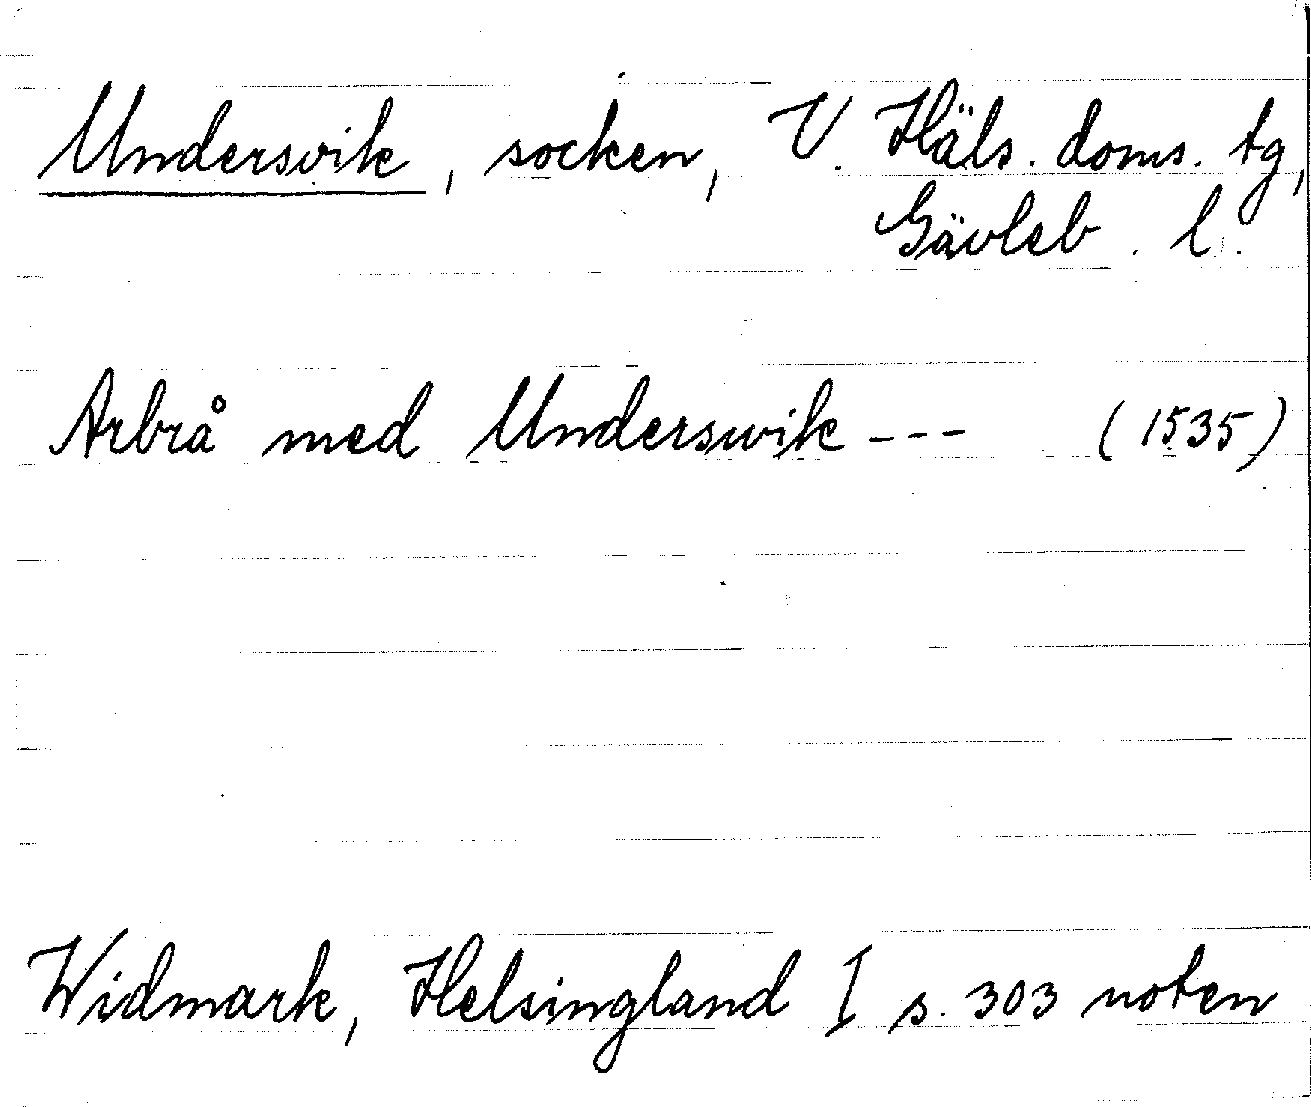 Undersvik, socken, V. Häls. doms. tg,
Gävleb. l.
Arbrå med Underswik --- (1535)
Widmark, Helsingland I s. 303 noten